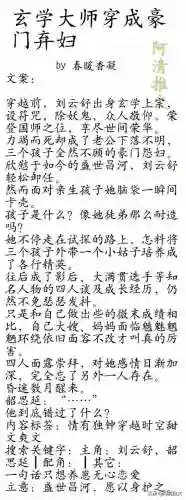 玄学大师穿成豪
门弃妇
by 春暖香凝
阿清推
文案：
穿越前，刘云舒出身玄学上宗，
设符咒，除妖鬼，众人敬仰。荣
登国师之位，享尽世间荣华。
力竭而死却成了老公下落不明，
三个孩子全然不顾的豪门怨妇。
欣慰于如今的盛世昌河，刘云舒
轻松卸任。
然而面对亲生孩子她脑袋一瞬间
卡壳。
孩子是什么？像她徒弟那么教造
吗？
她不停走在试探的路上，怎料将
三个孩子外带一个小姑子培养成
了各行精英。
往后成了影后、大满贯选手等知
名人物的四人谈及成长经历，仍
然不免瑟瑟发抖。
只是和自己做出些的微末成绩相
比，自己大嫂，妈妈面临魑魅魍
魉环绕依旧面容不改才叫真的厉
害。
四人面露崇拜，对她感情日渐加
深，完全忘了另外一人存在。
昏迷数月醒来。
韶思延：“……”
他到底错过了什么？
内容标签：情有独钟穿越时空甜
文爽文
搜索关键字：主角：刘云舒，韶
思延┃配角：┃其它：
一句话只想养愿无心恋爱
立意：盛世昌河，愿以身护之。